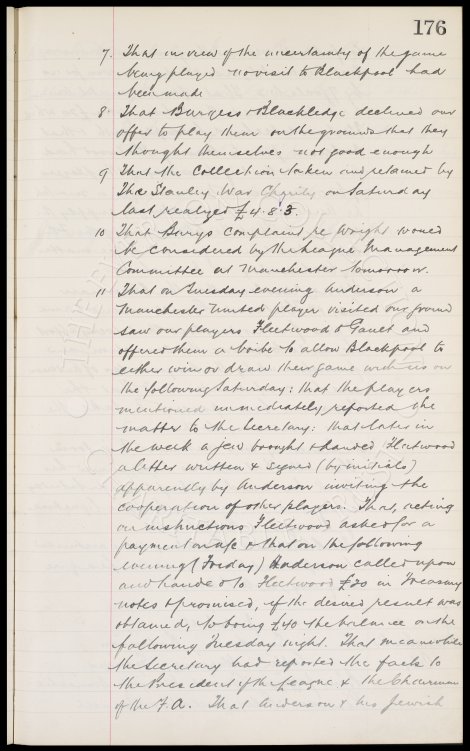 176
7. That in view of the uncertainty of the game
being played no visit to Blackpool had
been made
8. That Burgess & Blackledge declined our
offer to play them on the grounds that they
thought themselves not good enough
9 That the Collection taken and retained by
The Stanley War Charity on Saturday
last realized £4.8.3.
10 That Burys complaint re Wright would
be considered by the League Management
Committee at Manchester tomorrow.
11 That on Tuesday evening Anderson a
Manchester United player visited our ground
saw our players Fleetwood & Gault and
offered them a bribe to allow Blackpool to
either win or draw their game with us on
the following Saturday: that the players
mentioned immediately reported the
matter to the Secretary: that later in
the week a Jew brought & handed Fleetwood
a letter written & signed (by initials)
apparently by Anderson inviting the
cooperation of other players. That, acting
on instructions Fleetwood asked for a
payment on a/c & that on the following
evening (Friday) Anderson called upon
and handed to Fleetwood £20 in Treasury
notes & promised, if the desired result was
obtained, to bring £40 the balance on the
following Tuesday night. That meanwhile
the Secretary had reported the facts to
the President of the League & the Chairman
of the F.A. That Anderson & his Jewish